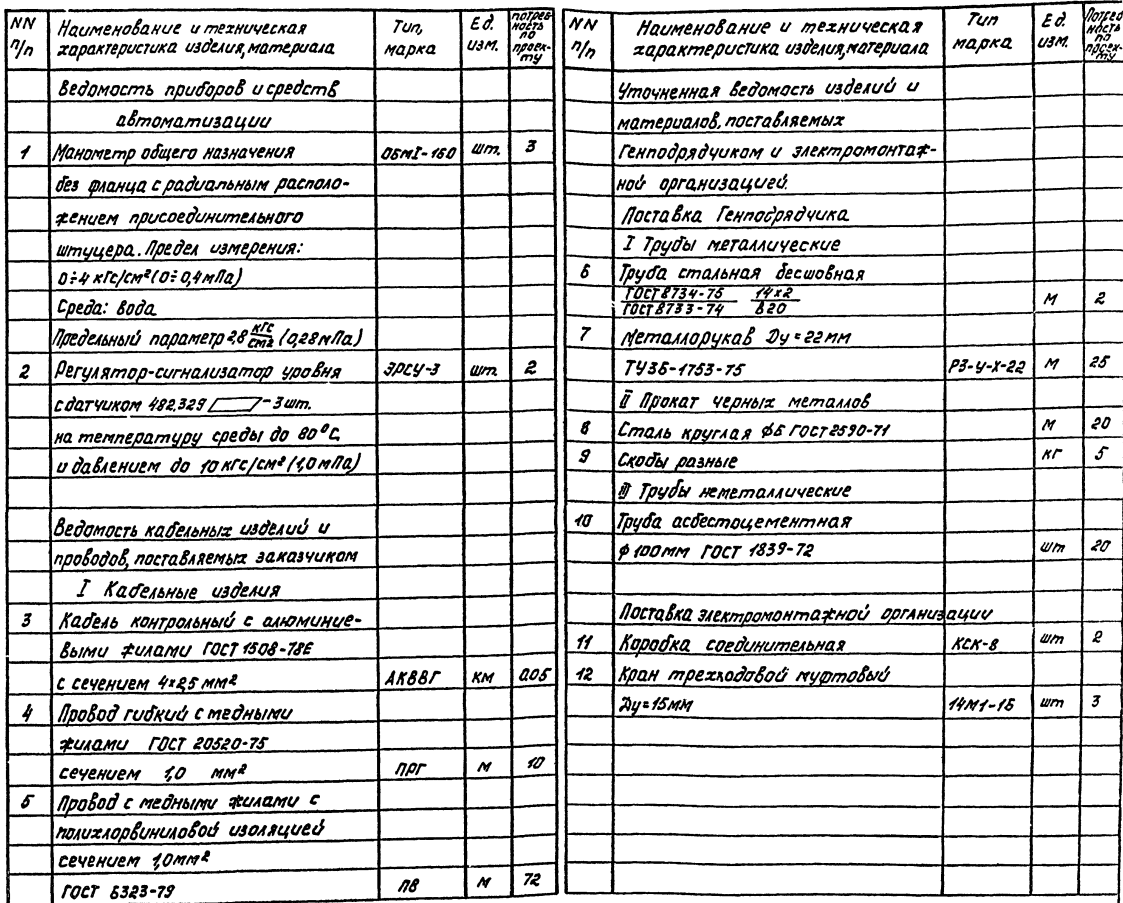 NN п/п Наименование и техническая характеристика изделия, материала Тип, марка Ед. изм. потреб-ность по проек-ту
Ведомость приборов и средств
автоматизации
1 Манометр общего назначения ОБМI-160 шт. 3
без фланца с радиальным располо-
жением присоединительного
штуцера. Предел измерения:
0÷4 кгс/см² (0÷0,4 мПа)
Среда: вода
Предельный параметр 2,8 кгс/см² (0,28 мПа)
2 Регулятор-сигнализатор уровня ЭРСУ-3 шт. 2
с датчиком 482.329 - 3 шт.
на температуру среды до 80°С,
и давлением до 10 кгс/см² (1,0 мПа)
Ведомость кабельных изделий и
проводов, поставляемых заказчиком
I Кабельные изделия
3 Кабель контрольный с алюминие-
выми жилами ГОСТ 1508-78Е
с сечением 4×2,5 мм² АКВВГ км 0.05
4 Провод гибкий с медными
жилами ГОСТ 20520-75
сечением 1,0 мм² ПРГ м 10
5 Провод с медными жилами с
полихлорвиниловой изоляцией
сечением 1,0 мм²
ГОСТ 6323-79 ПВ м 72
NN п/п Наименование и техническая характеристика изделия, материала Тип марка Ед. изм. Потреб-ность по проек-ту
Уточненная ведомость изделий и
материалов, поставляемых
Генподрядчиком и электромонтаж-
ной организацией.
Поставка Генподрядчика
I Трубы металлические
6 Труба стальная бесшовная
ГОСТ 8734-75 14×2
ГОСТ 8733-74 В20 м 2
7 Металлорукав Ду=22 мм
ТУ36-1753-75 РЗ-Ц-Х-22 м 25
II Прокат черных металлов
8 Сталь круглая ф6 ГОСТ 2590-71 м 20
9 Скобы разные кг 5
III Трубы неметаллические
10 Труба асбестоцементная
ф 100 мм ГОСТ 1839-72 шт 20
Поставка электромонтажной организации
11 Коробка соединительная КСК-8 шт 2
12 Кран трехходовой муфтовый
Ду=15 мм 14М1-16 шт 3